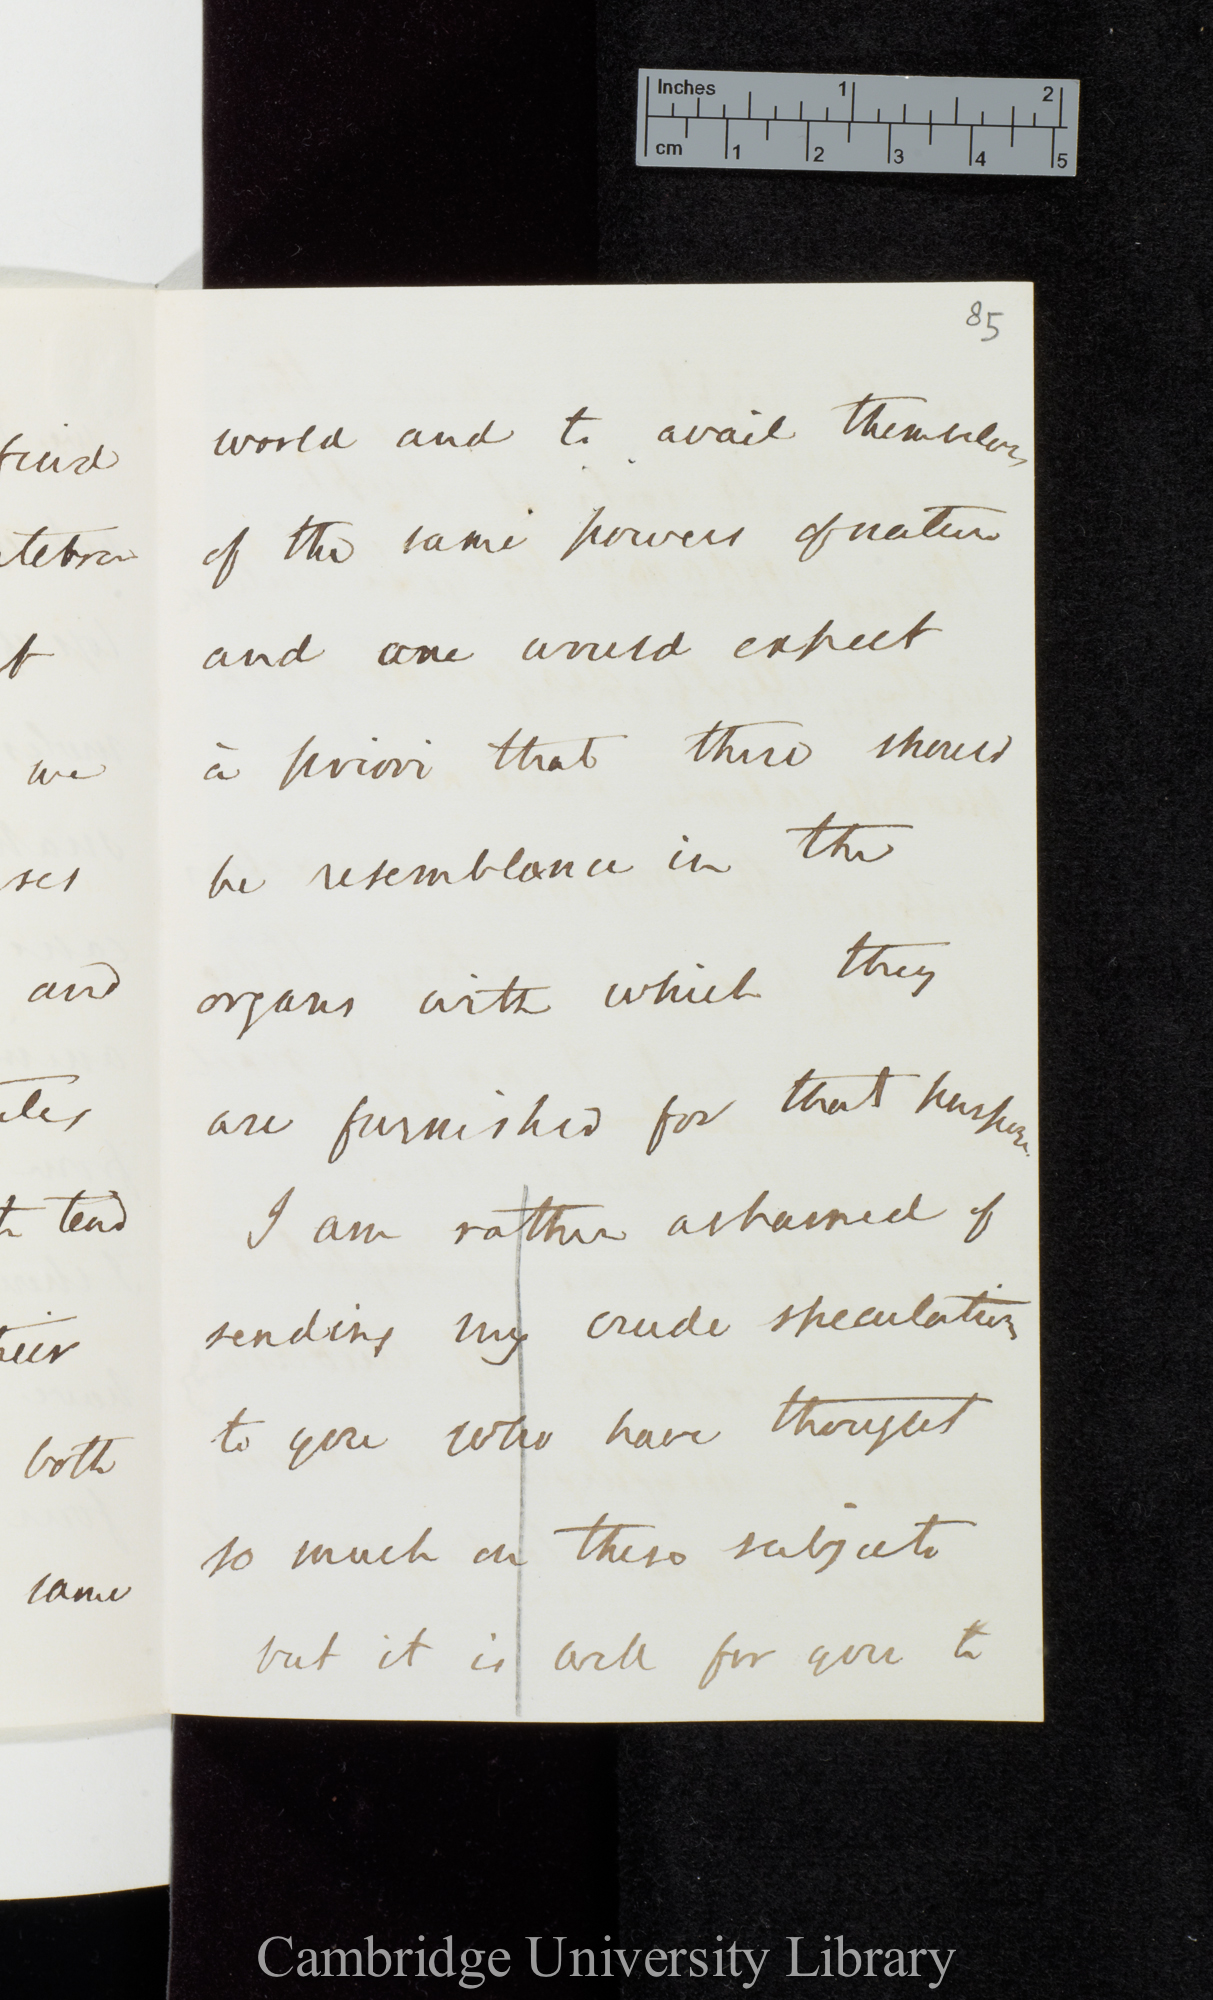 Inches 1 2
cm 1 2 3 4 5
85
find
we
and
tend
both
same
world and to avail themselves
of the same powers of nature
and one would expect
à priori that there should
be resemblance in the
organs with which they
are furnished for that purpose.
I am rather ashamed of
sending my crude speculations
to you who have thought
so much on these subjects
but it is well for you to
Cambridge University Library